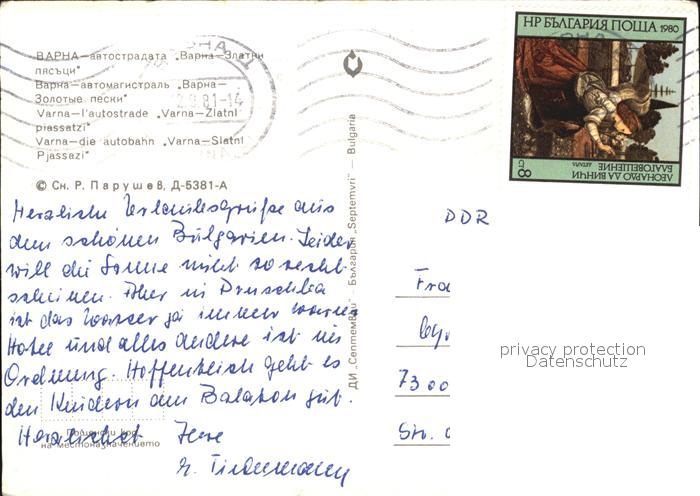 НР БЪЛГАРИЯ ПОЩА 1980
ЛЕОНАРДО ДА ВИНЧИ
БЛАГОВЕЩЕНИЕ
ДЕТАЙЛ
8 СТ
ВАРНА—автострадата „Варна—Златни
пясъци"
Варна—автомагистраль „Варна—
Золотые пески"
Varna—l'autostrade „Varna—Zlatni
piassatzi"
Varna—die autobahn „Varna—Slatni
Pjassazi"
© Сн. Р. Парушев, Д-5381-А
Herzliche Urlaubsgrüße aus
dem schönen Bulgarien. Leider
will die Sonne nicht so recht
scheinen. Aber in Druschba
ist das Wasser ja immer warm
Hotel und alles andere ist in
Ordnung. Hoffentlich geht es
den Kindern am Balaton gut.
Herzlichst Ihre
Пощенски код
на местоназначението
ДИ „Септември" — България „Septemvri" — Bulgaria
DDR
Fra
7300
Str.
privacy protection
Datenschutz